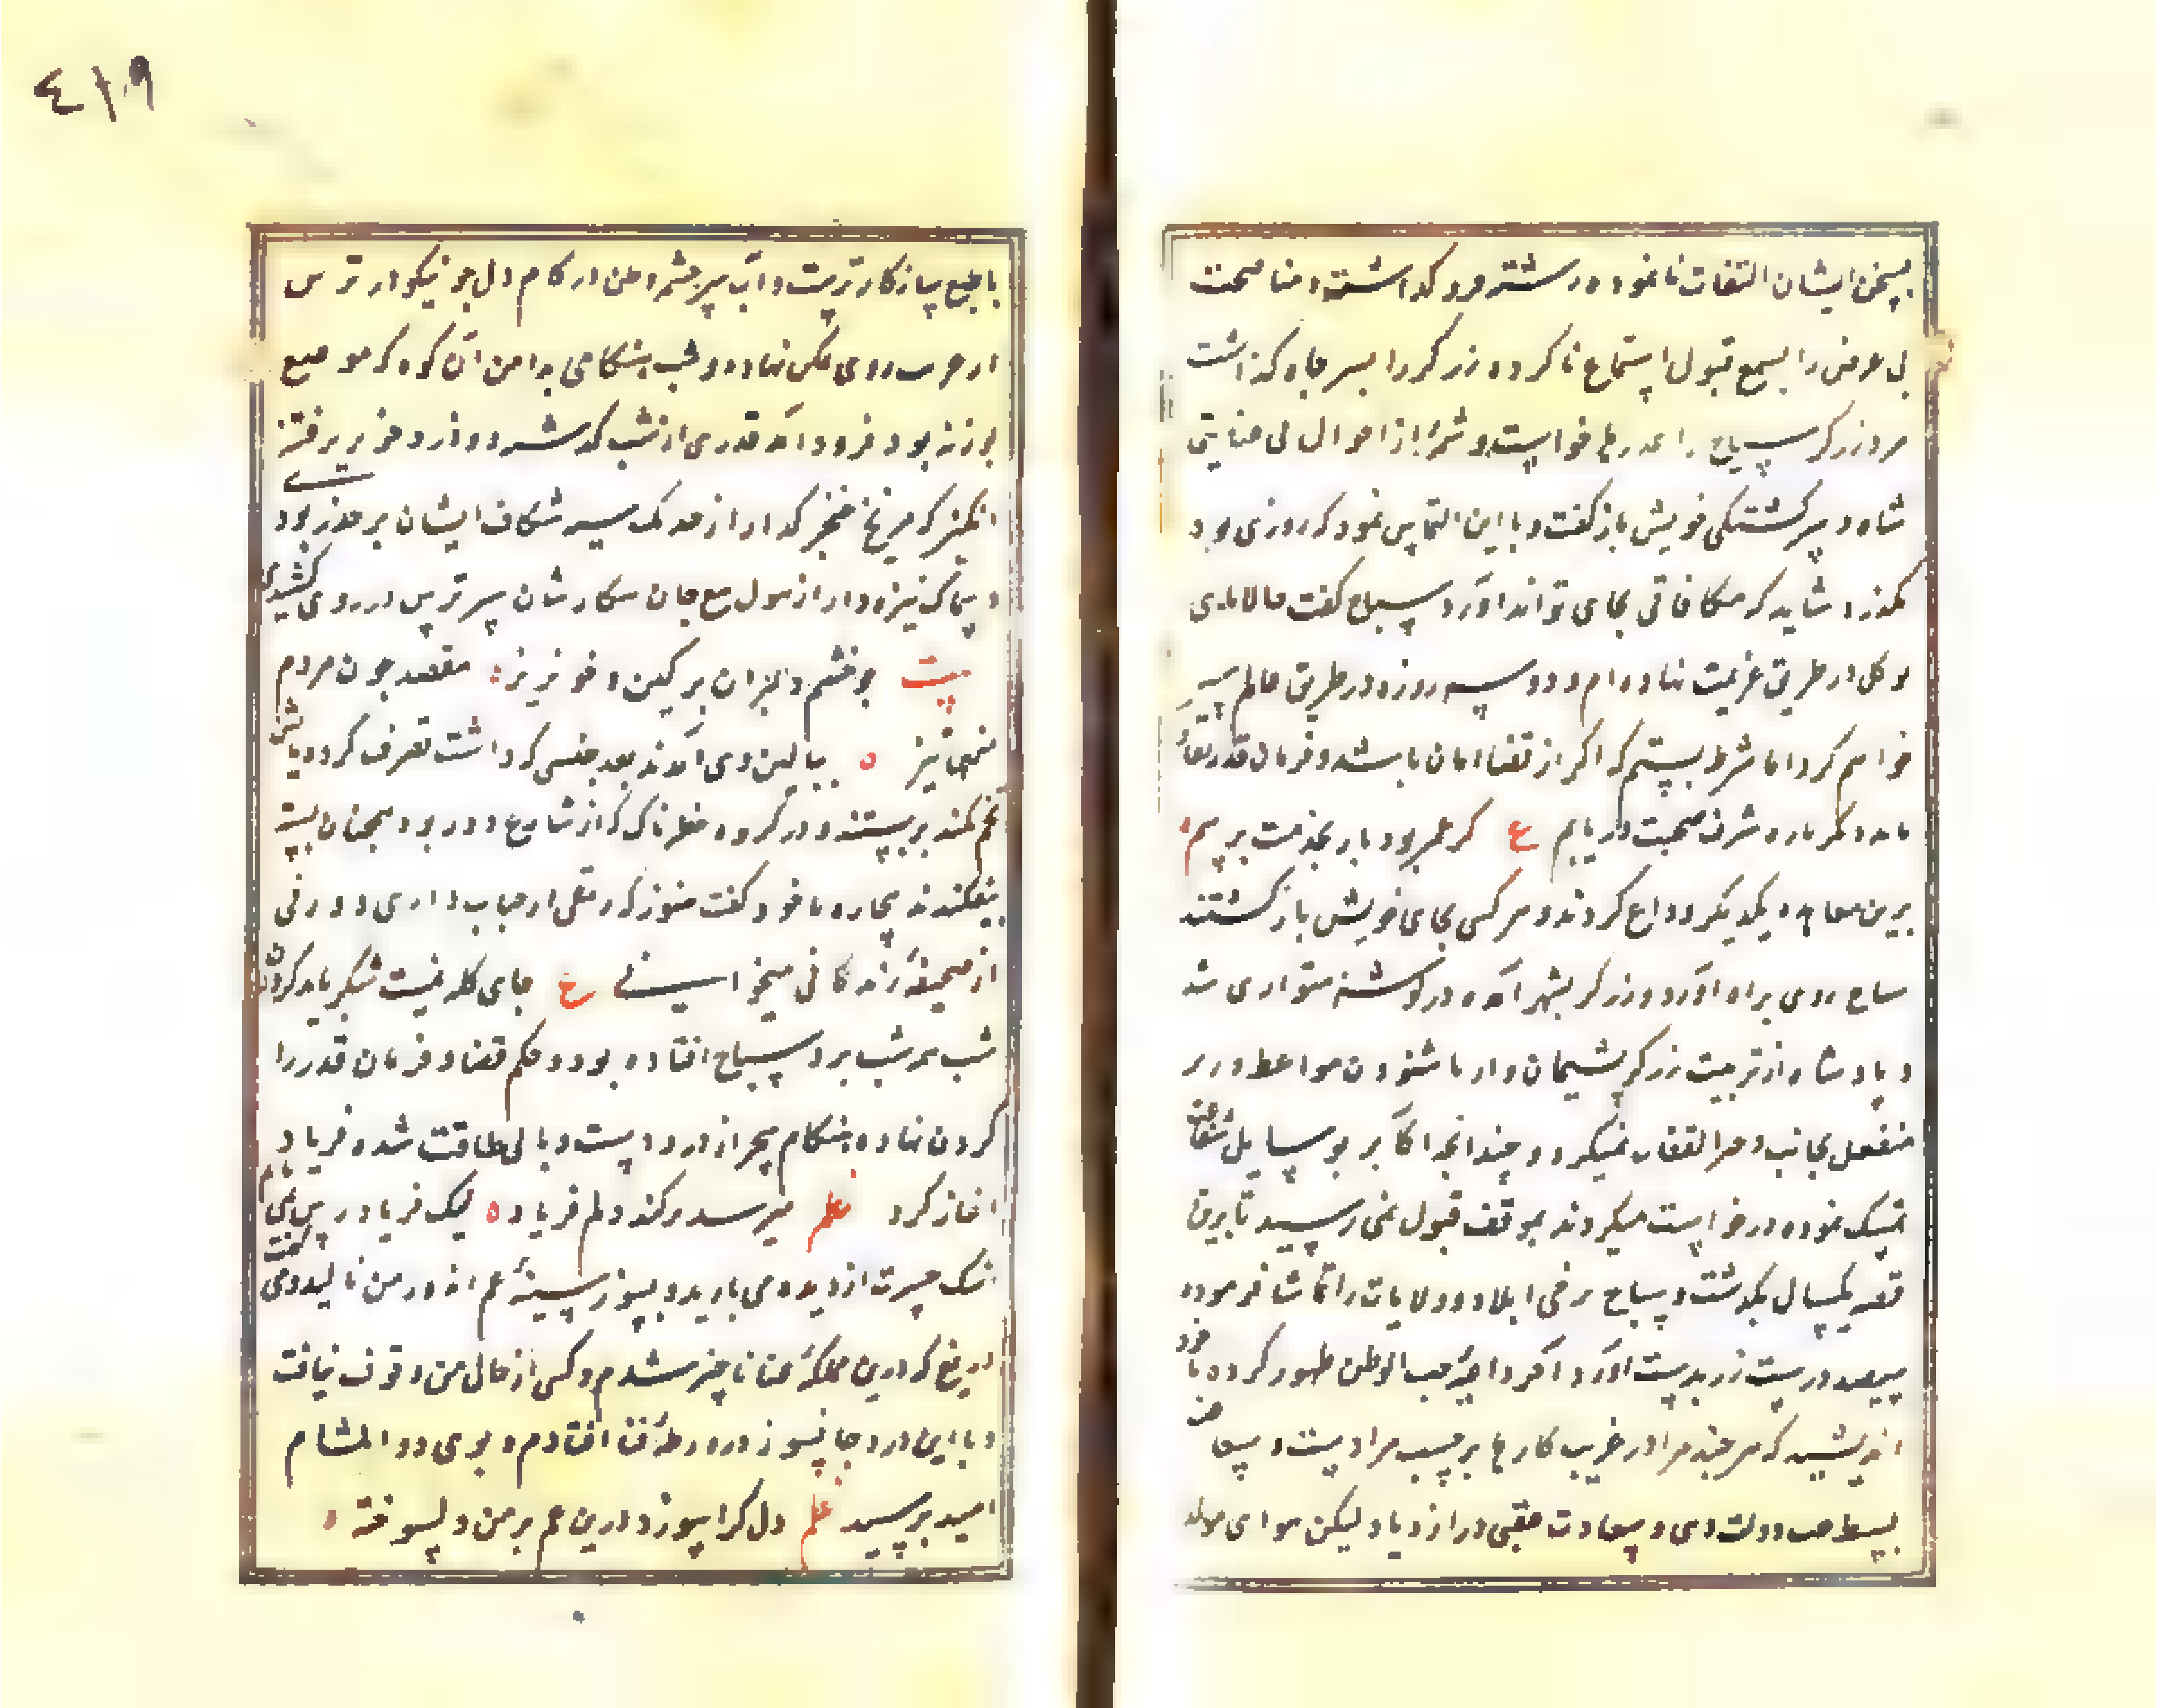 بسخن ایشان التفات نانموده در شته فرو گذاشت و مناصحت
بی غرض را بسمع قبول استماع ناکرده زرگر را بسر چاه گذاشت
مرد زرگر سیاح را عذرها خواست و شمهٔ از احوال بی عنایتی
شاه و سرگشتگی خویش باز گفت و با این التماس نمود که روزی بود
بگذرد شاید که مکافاتی بجای تواند آورد سیاح گفت حالا
توکل در طریق عزیمت نهاده‌ام و دو سه روزه در طریق عالم سیر
خواهم کرد اما شرط بستم که اگر از قضا امان باشد و فرمان قدر
دگر باره شرف صحبت دریابم ع گر عمر بود باز بخدمت برسم
برین معاهده یکدیگر وداع کردند و هر کس بجای خویش باز گشتند
سیاح روی براه آورد و زرگر بشهر آمده در گوشه متواری شد
و پادشاه از تربیت زرگر پشیمان و از ناشنودن مواعظ وزیر
منفعل بجانب او مرا التفات نمیکرد و چندانچه اکابر بوسایل شفاعت
تمسک نموده درخواست میکردند بموقف قبول نمی رسید تا برین
قصه یکسال بگذشت و سیاح برخی بلاد و ولایات را تماشا فرموده
سیصد درست زر بدست آورد آخر داعیهٔ حب الوطن ظهور کرده با خود
اندیشید که هر چند مرا در غریب کارها بر حسب مرادیست و
بسبط حب دولت دی و سعادت عقبی در ازدیاد لیکن هوای مولد
٤١٩
با طبع سازکارتریست و آب سرچشمه وطن در کام دل جو نیکوار ترس
روی بمسکن نهاده و شب هنگامی بدامن آن کوه که موضع
بوزنه بود فرود آمد قدری از شب گذشته دو دزد خون ریز فتنه
انگیز که مریخ خنجر گذار از خدنگ سینه شکاف ایشان بر حذر بود
و سماک نیزه دار از هول رمح جان شکارشان سپر ترس در روی کشیدی
بیت چو خشم دلبران پر کین و خونریز مقصد جون مردم
بالین وی آمدند بعد جنسی که داشت تصرف کرد و پایش
بخم کمند بربستند و در گروه خطرناک که از شارع دور بود همچنان بسته
بیفکندند بیچاره با خود گفت هنوز که رمقی از حباب داری و ورقی
از صحیفهٔ زندگانی میخوانی ع جای گله نیست شکر باید کرد
شب همه شب برد سیاح افتاده بود و حکم قضا و فرمان قدر را
گردن نهاده هنگام سحر از درد دست و پا بی طاقت شد و فریاد
آغاز کرد نظم میرسد هر کند دلم فریاد لیک فریادرس نمی یابم
اشک حسرت از دیده می بارید و بسوز سینهٔ غم اندوز من نالید و می گفت
دریغ که درین مهلکهٔ عنا ناچیز شدم و کسی از حال من وقوف نیافت
و با این درد جانسوز در ورطهٔ فنا افتادم و بوی دوا بمشام
امید نرسید نظم دل کرا سوزد درین غم بر من دلسوخته